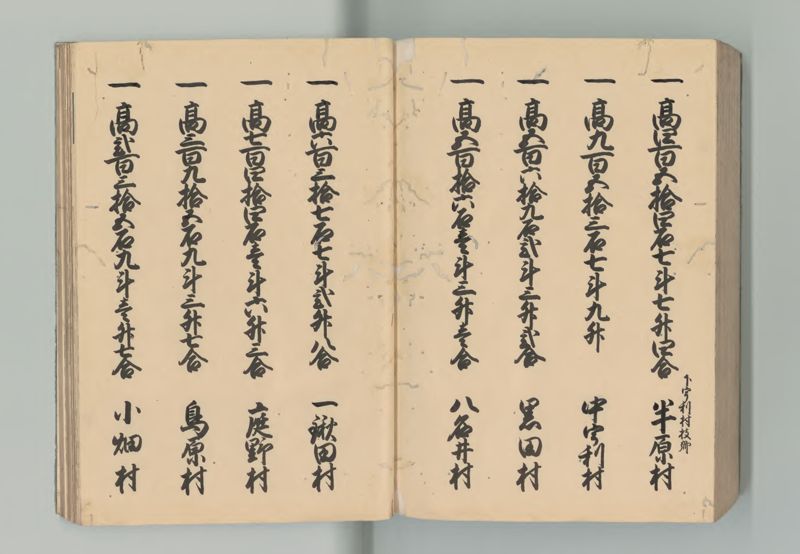 下宇利村枝郷
一 髙四百五拾四石七斗七升四合 半原村
一 髙九百五拾三石七斗九升 中宇利村
一 髙五百六拾九石弐斗三升弐合 黒田村
一 髙五百拾六石壱斗三升壱合 八名井村
一 髙六百三拾七石七斗弐升八合 一鍬田村
一 髙七百四拾四石壱斗六升三合 庭野村
一 髙三百九拾五石九斗三升七合 鳥原村
一 髙弐百三拾五石九斗壱升七合 小畑村